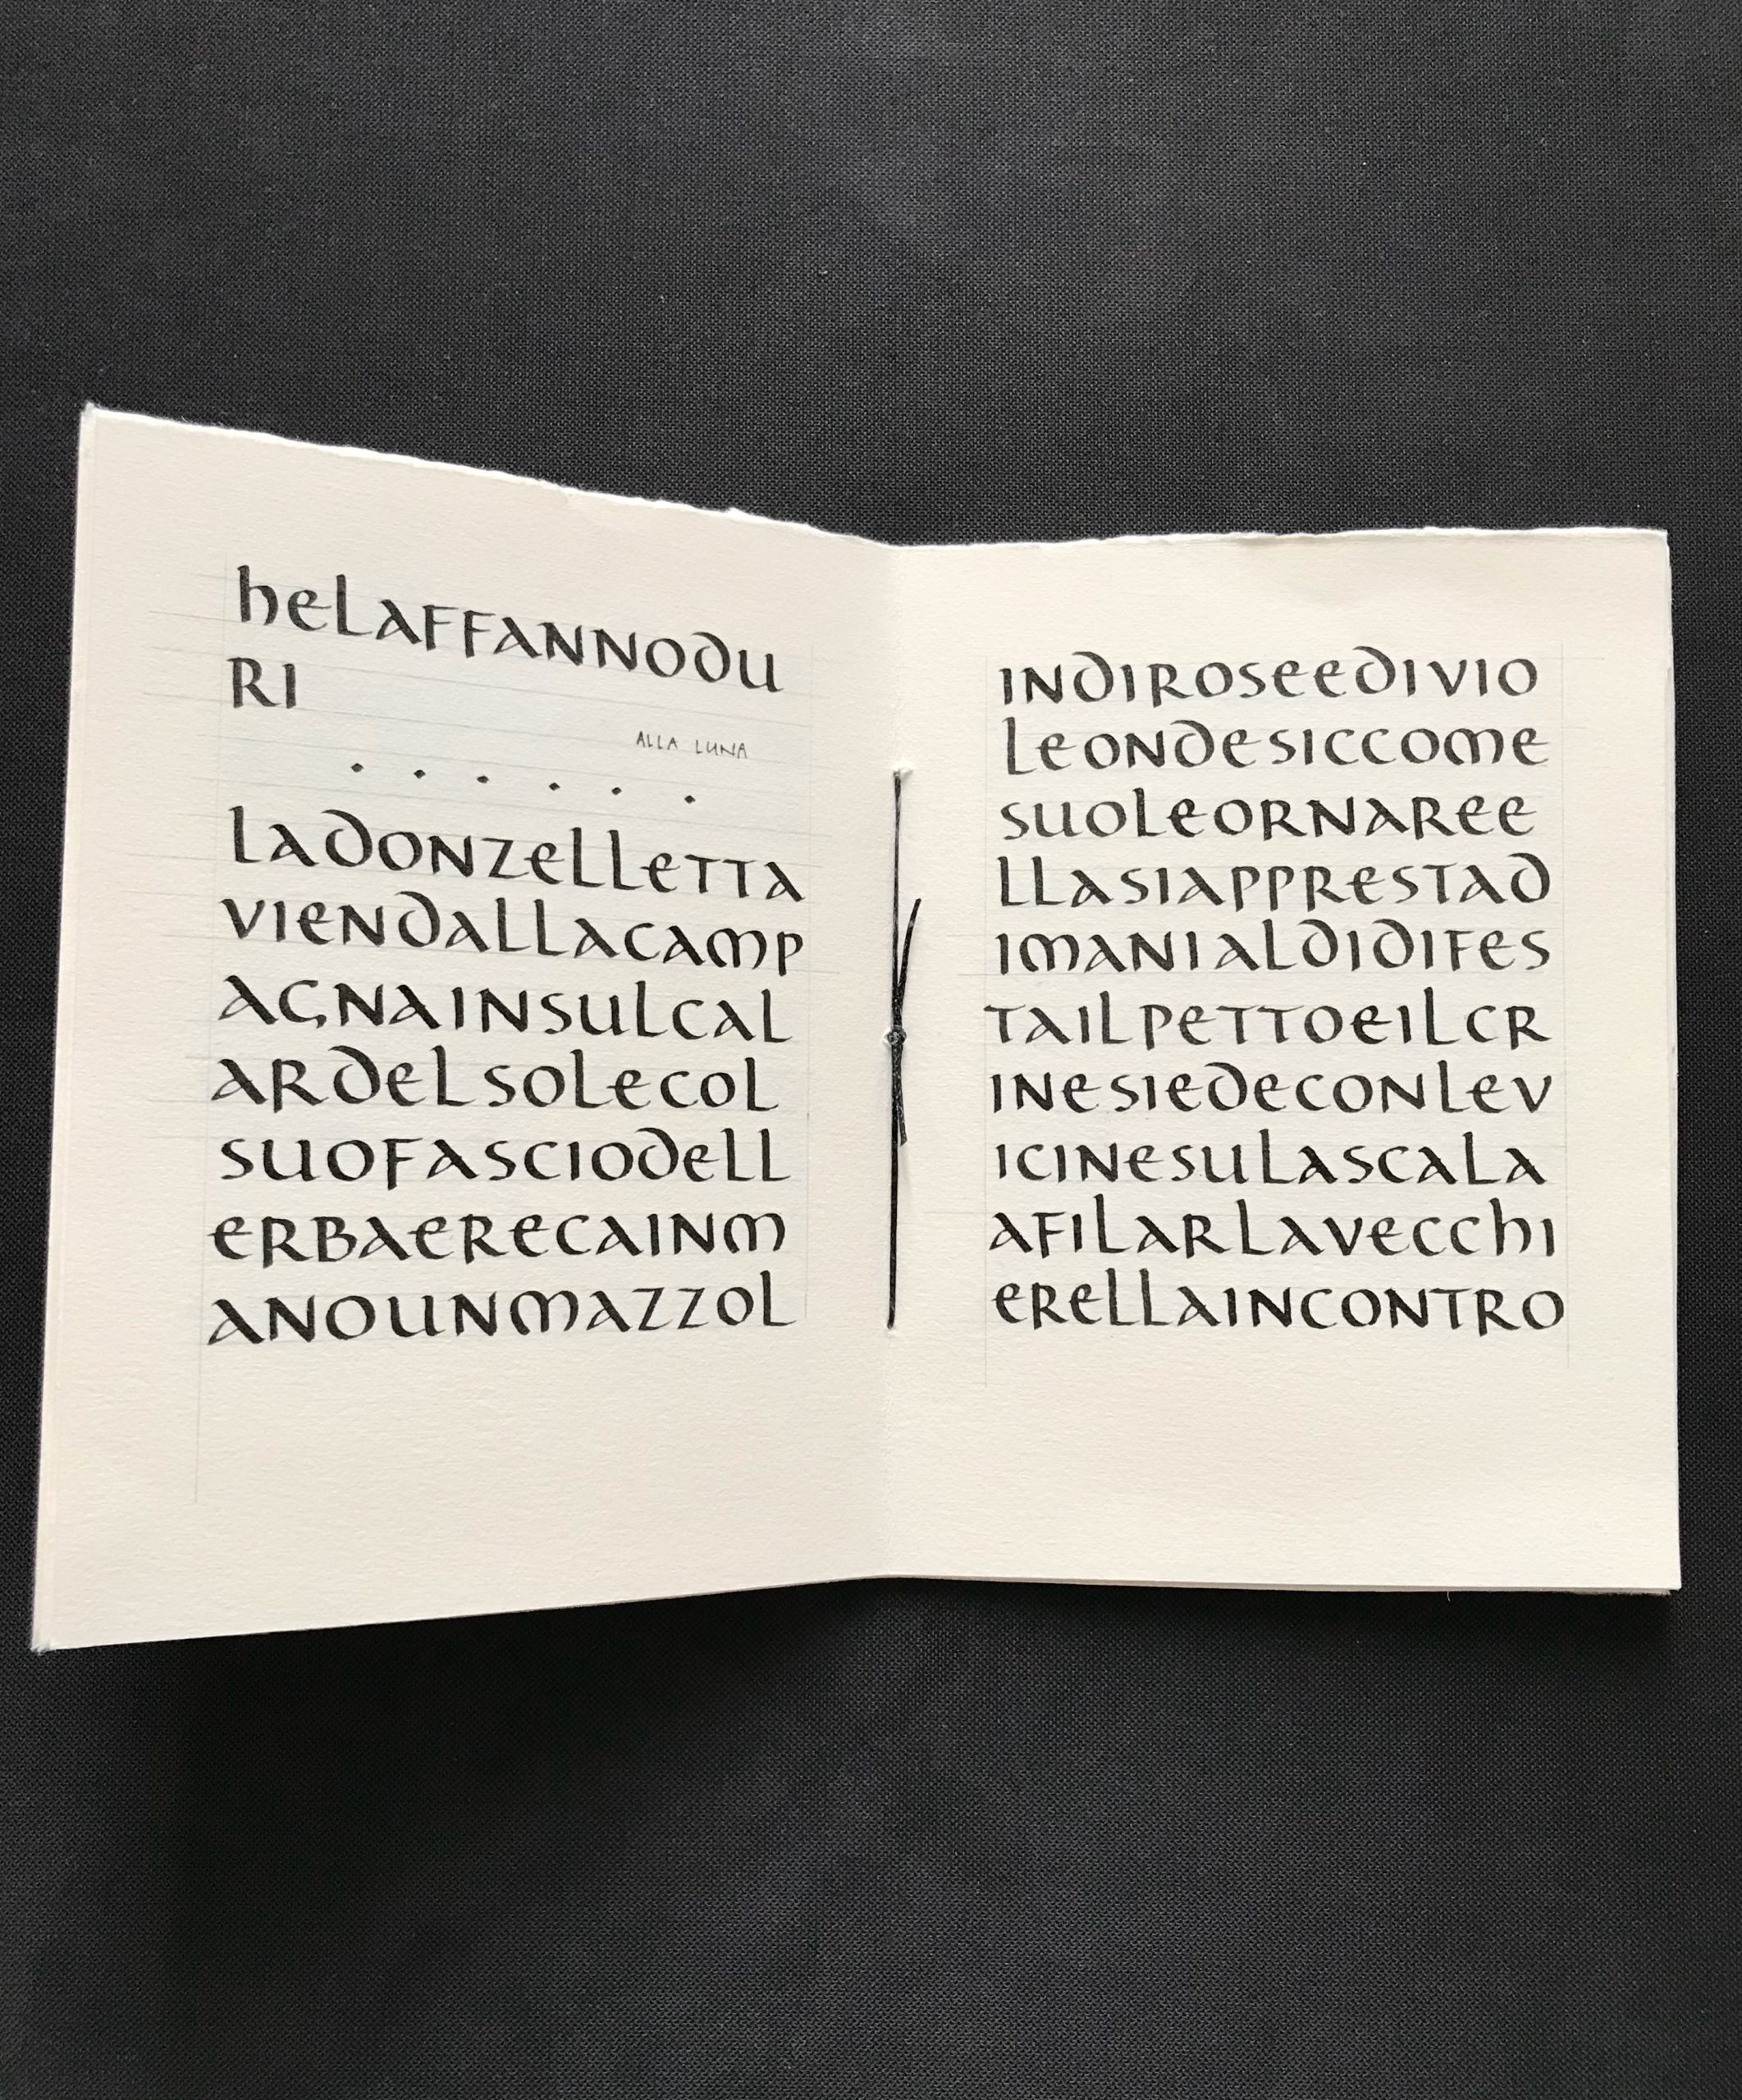 helAFFANNODU
RI
ALLA LUNA
. . . . . .
lADONZellETTA
VIENDAllACAMP
AGNAINSUlCAL
ARDelSOleCOL
SUOFASCIODell
eRBAeReCAINM
ANOUNMAZZOL
INDIROSeeDIVIO
leONDeSICCOMe
SUOleORNARee
llASIAPPReSTAD
IMANIALDIDIFeS
TAILPeTTOeILCR
INeSIeDeCONleV
ICINeSULASCALA
AFILARLAVeCChI
eRellAINCONTRO